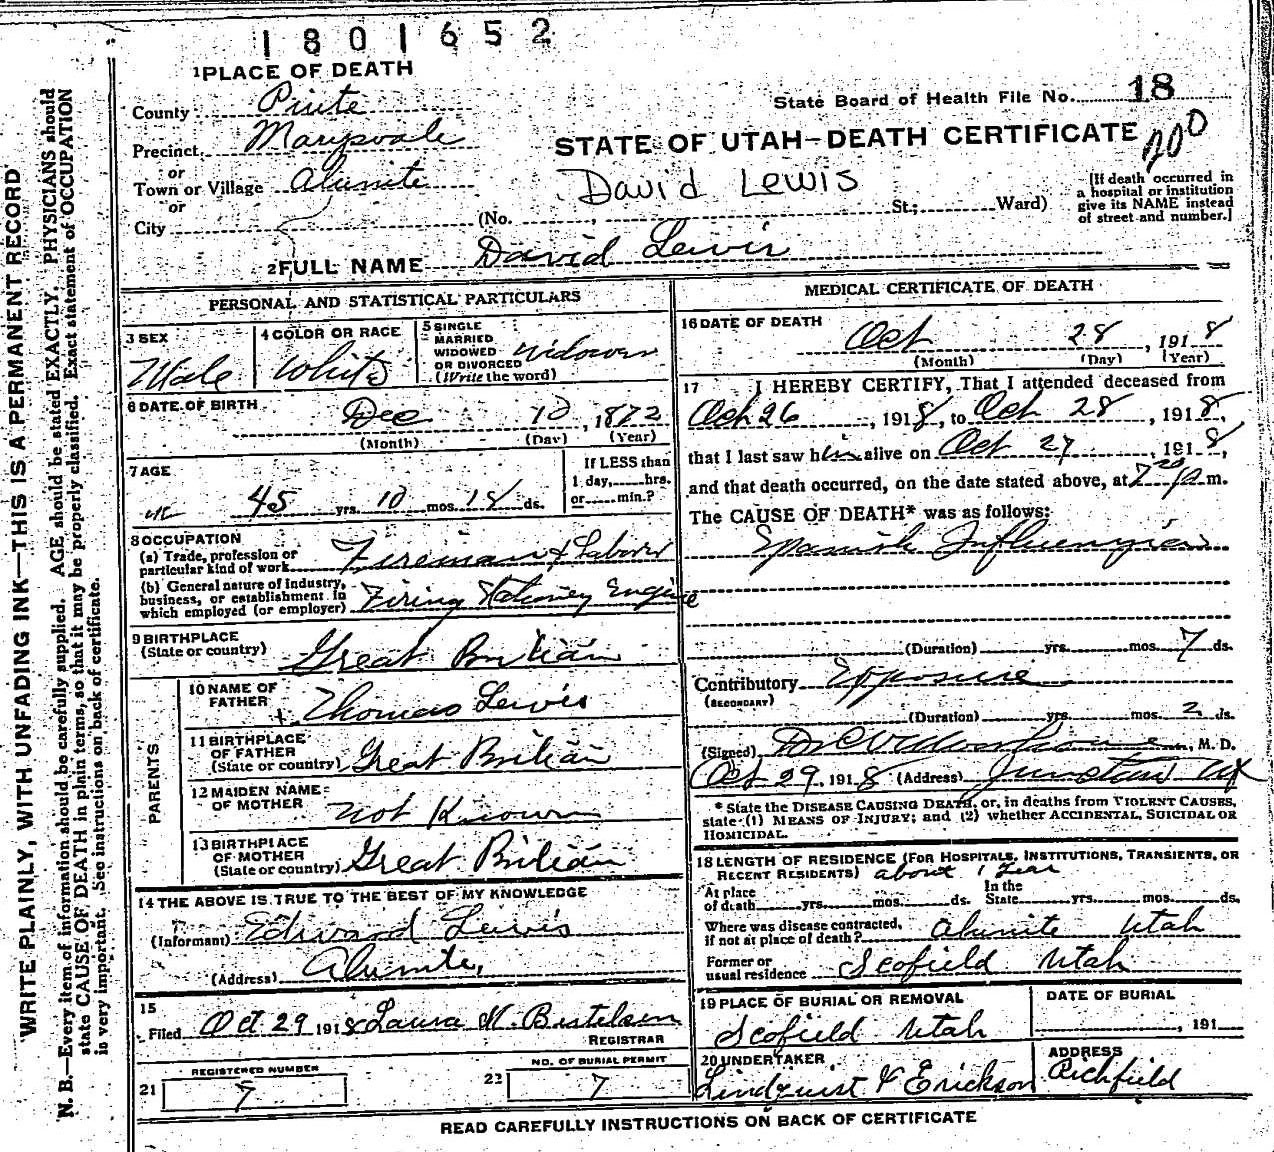 1801652
1 PLACE OF DEATH
County Piute
State Board of Health File No. 18
Precinct Marysvale
STATE OF UTAH—DEATH CERTIFICATE
200
or
Town or Village Alunite
David Lewis
or
City
(No. , St; Ward)
[If death occurred in
a hospital or institution
give its NAME instead
of street and number.]
2 FULL NAME David Lewis
PERSONAL AND STATISTICAL PARTICULARS
3 SEX
Male
4 COLOR OR RACE
White
5 SINGLE
MARRIED
WIDOWED
OR DIVORCED
(Write the word)
Widower
6 DATE OF BIRTH
Dec 10, 1872
(Month) (Day) (Year)
7 AGE
45 yrs. 10 mos. 18 ds.
If LESS than
1 day, hrs.
or min.?
8 OCCUPATION
(a) Trade, profession or
particular kind of work Fireman & Laborer
(b) General nature of industry,
business, or establishment in
which employed (or employer) Firing Stationey Engine
9 BIRTHPLACE
(State or country) Great Britian
PARENTS
10 NAME OF
FATHER Thomas Lewis
11 BIRTHPLACE
OF FATHER
(State or country) Great Britian
12 MAIDEN NAME
OF MOTHER not Known
13 BIRTHPLACE
OF MOTHER
(State or country) Great Britian
14 THE ABOVE IS TRUE TO THE BEST OF MY KNOWLEDGE
(Informant) Edward Lewis
(Address) Alunite,
15
Filed Oct 29 1918 Laura
REGISTRAR
REGISTERED NUMBER
21 7
NO. OF BURIAL PERMIT
22 7
MEDICAL CERTIFICATE OF DEATH
16 DATE OF DEATH
Oct 28, 1918
(Month) (Day) (Year)
17 I HEREBY CERTIFY, That I attended deceased from
Oct 26, 1918, to Oct 28, 1918,
that I last saw him alive on Oct 27, 1918,
and that death occurred, on the date stated above, at 7 20 p m.
The CAUSE OF DEATH* was as follows:
Spanish Influenzia
(Duration) yrs. mos. 7 ds.
Contributory Exposure
(SECONDARY)
(Duration) yrs. mos. 2 ds.
(Signed) , M. D.
Oct 29, 1918 (Address) Junction Ut
* State the DISEASE CAUSING DEATH, or, in deaths from VIOLENT CAUSES,
state (1) MEANS OF INJURY; and (2) whether ACCIDENTAL, SUICIDAL OR
HOMICIDAL.
18 LENGTH OF RESIDENCE (FOR HOSPITALS, INSTITUTIONS, TRANSIENTS, OR
RECENT RESIDENTS) about 1 year
At place
of death yrs. mos. ds.
In the
State yrs. mos. ds.
Where was disease contracted,
if not at place of death? Alunite Utah
Former or
usual residence Scofield Utah
19 PLACE OF BURIAL OR REMOVAL
Scofield Utah
DATE OF BURIAL
, 191
20 UNDERTAKER
Lindquist & Erickson
ADDRESS
Richfield
READ CAREFULLY INSTRUCTIONS ON BACK OF CERTIFICATE
WRITE PLAINLY, WITH UNFADING INK—THIS IS A PERMANENT RECORD
N. B.—Every item of information should be carefully supplied. AGE should be stated EXACTLY. PHYSICIANS should
state CAUSE OF DEATH in plain terms, so that it may be properly classified. Exact statement of OCCUPATION
is very important. See instructions on back of certificate.